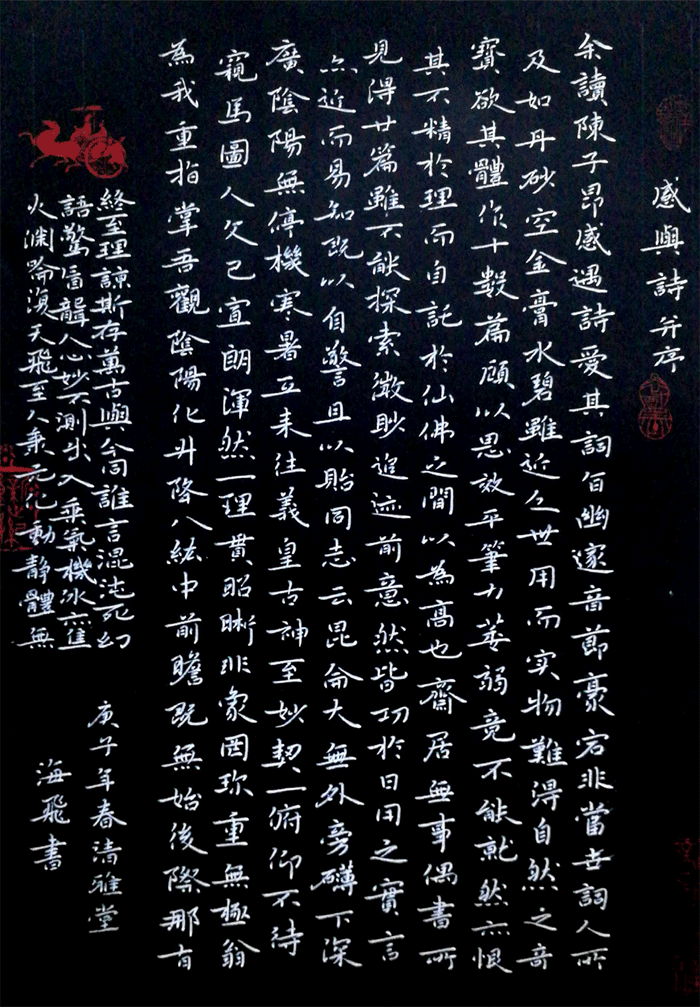 感興詩并序
余讀陳子昂感遇詩愛其詞旨幽邃音節豪宕非當世詞人所
及如丹砂空金膏水碧雖近乏世用而实物難得自然之奇
寶欲其體作十數篇顧以思效平筆力萎弱竟不能就然亦恨
其不精於理而自託於仙佛之間以為高也齋居無事偶書所
見得廿篇雖不能探索微眇追迹前意然皆切於日用之實言
亦近而易知既以自警且以貽同志云昆侖大無外旁礴下深
廣陰陽無停機寒暑互来往羲皇古神至妙契一俯仰不待
窺馬圖人文已宣朗渾然一理貫昭晰非象罔珎重無極翁
為我重指掌吾觀陰陽化升降八紘中前瞻既無始後際那有
終至理諒斯存萬古與今同誰言混沌死幻
語驚盲聾人心妙不測出入乘氣機冰亦焦
火淵淪復天飛至人秉元化動靜體無
庚子年春清雅堂
海飛書